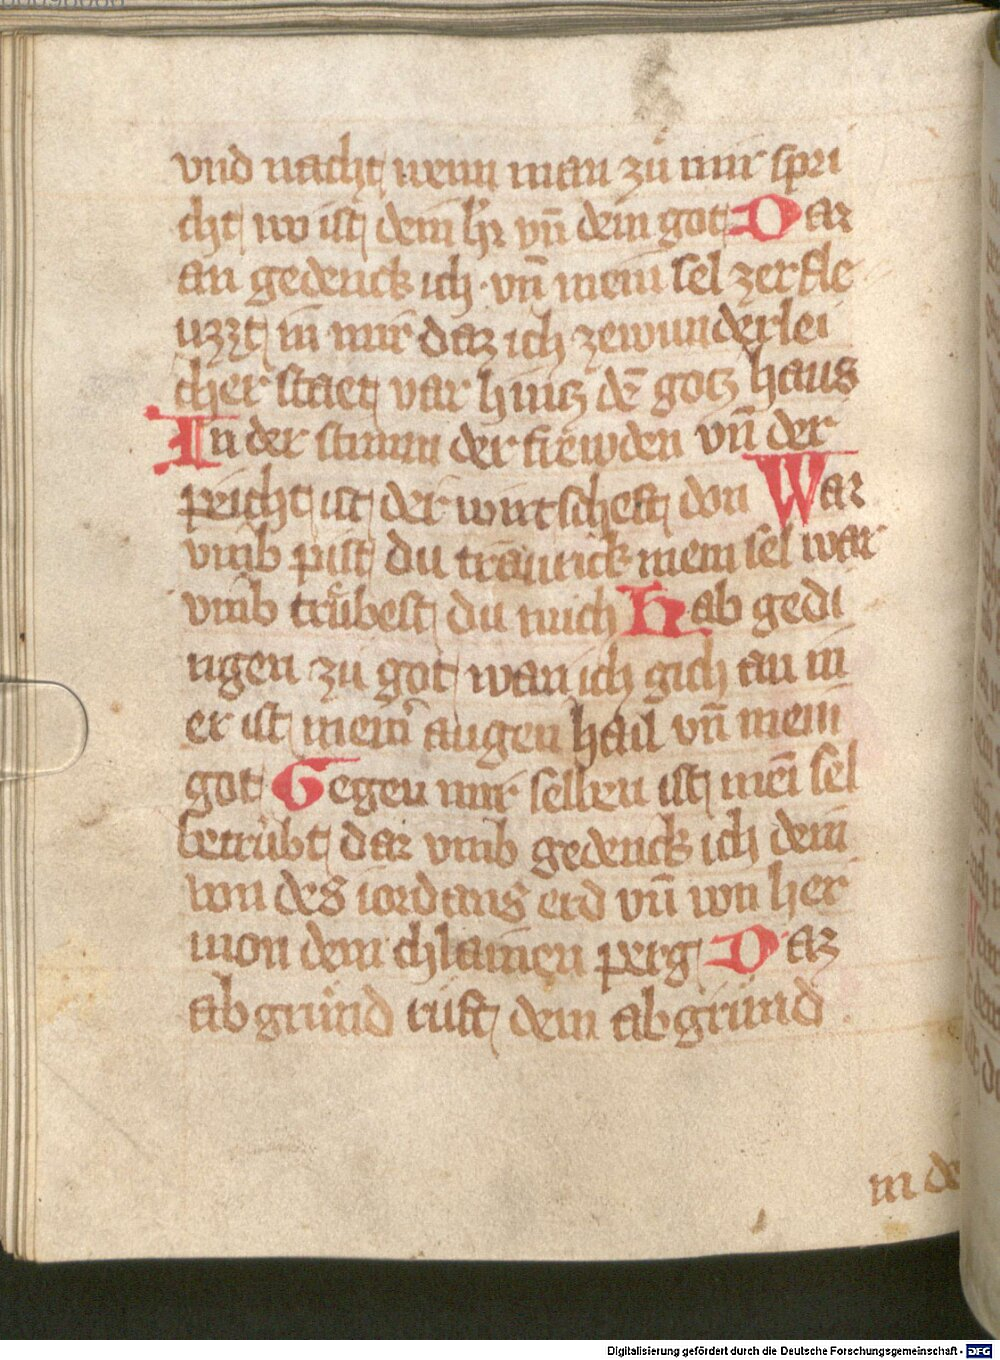 vnd nacht wenn man zů mir spri
cht wo ist dein hr̄ vn̄ dein got Dar
an gedenck ich · vn̄ mein sel zerfle
uzzt in mir daz ich zewunderlei
cher staet var hintz dē gotz haus
In der stimm der frewden vn̄ der
peicht ist der wirtscheft don War
vmb pist du traurick mein sel war
vmb trůbest du mich Hab gedi
ngen zu got wan ich gich an in
er ist meinr̄ augen hail vn̄ mein
got Gegen mir selben ist mēi sel
betrůbt dar vmb gedenck ich dein
von des iordans erd vn̄ von her
mon dem chlainen perg Daz
abgrůnd růft dem abgrůnd
in de
Digitalisierung gefördert durch die Deutsche Forschungsgemeinschaft - DFG